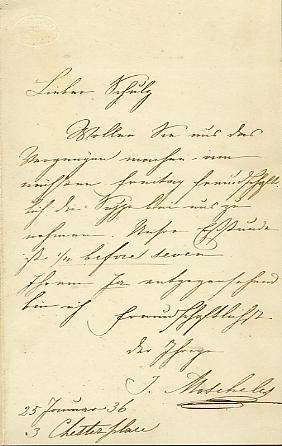 Lieber Schulz
Wollen Sie uns das
Vergnügen machen am
nächsten Freitag freundschaft-
lich die Suppe bei uns zu
nehmen. Unsre Eßstunde
ist 1/4 before seven
Ihrem Ja entgegensehend
bin ich freundschaftlichst
der Ihrige
I. Moscheles
25 Januar 36
3 Chester place